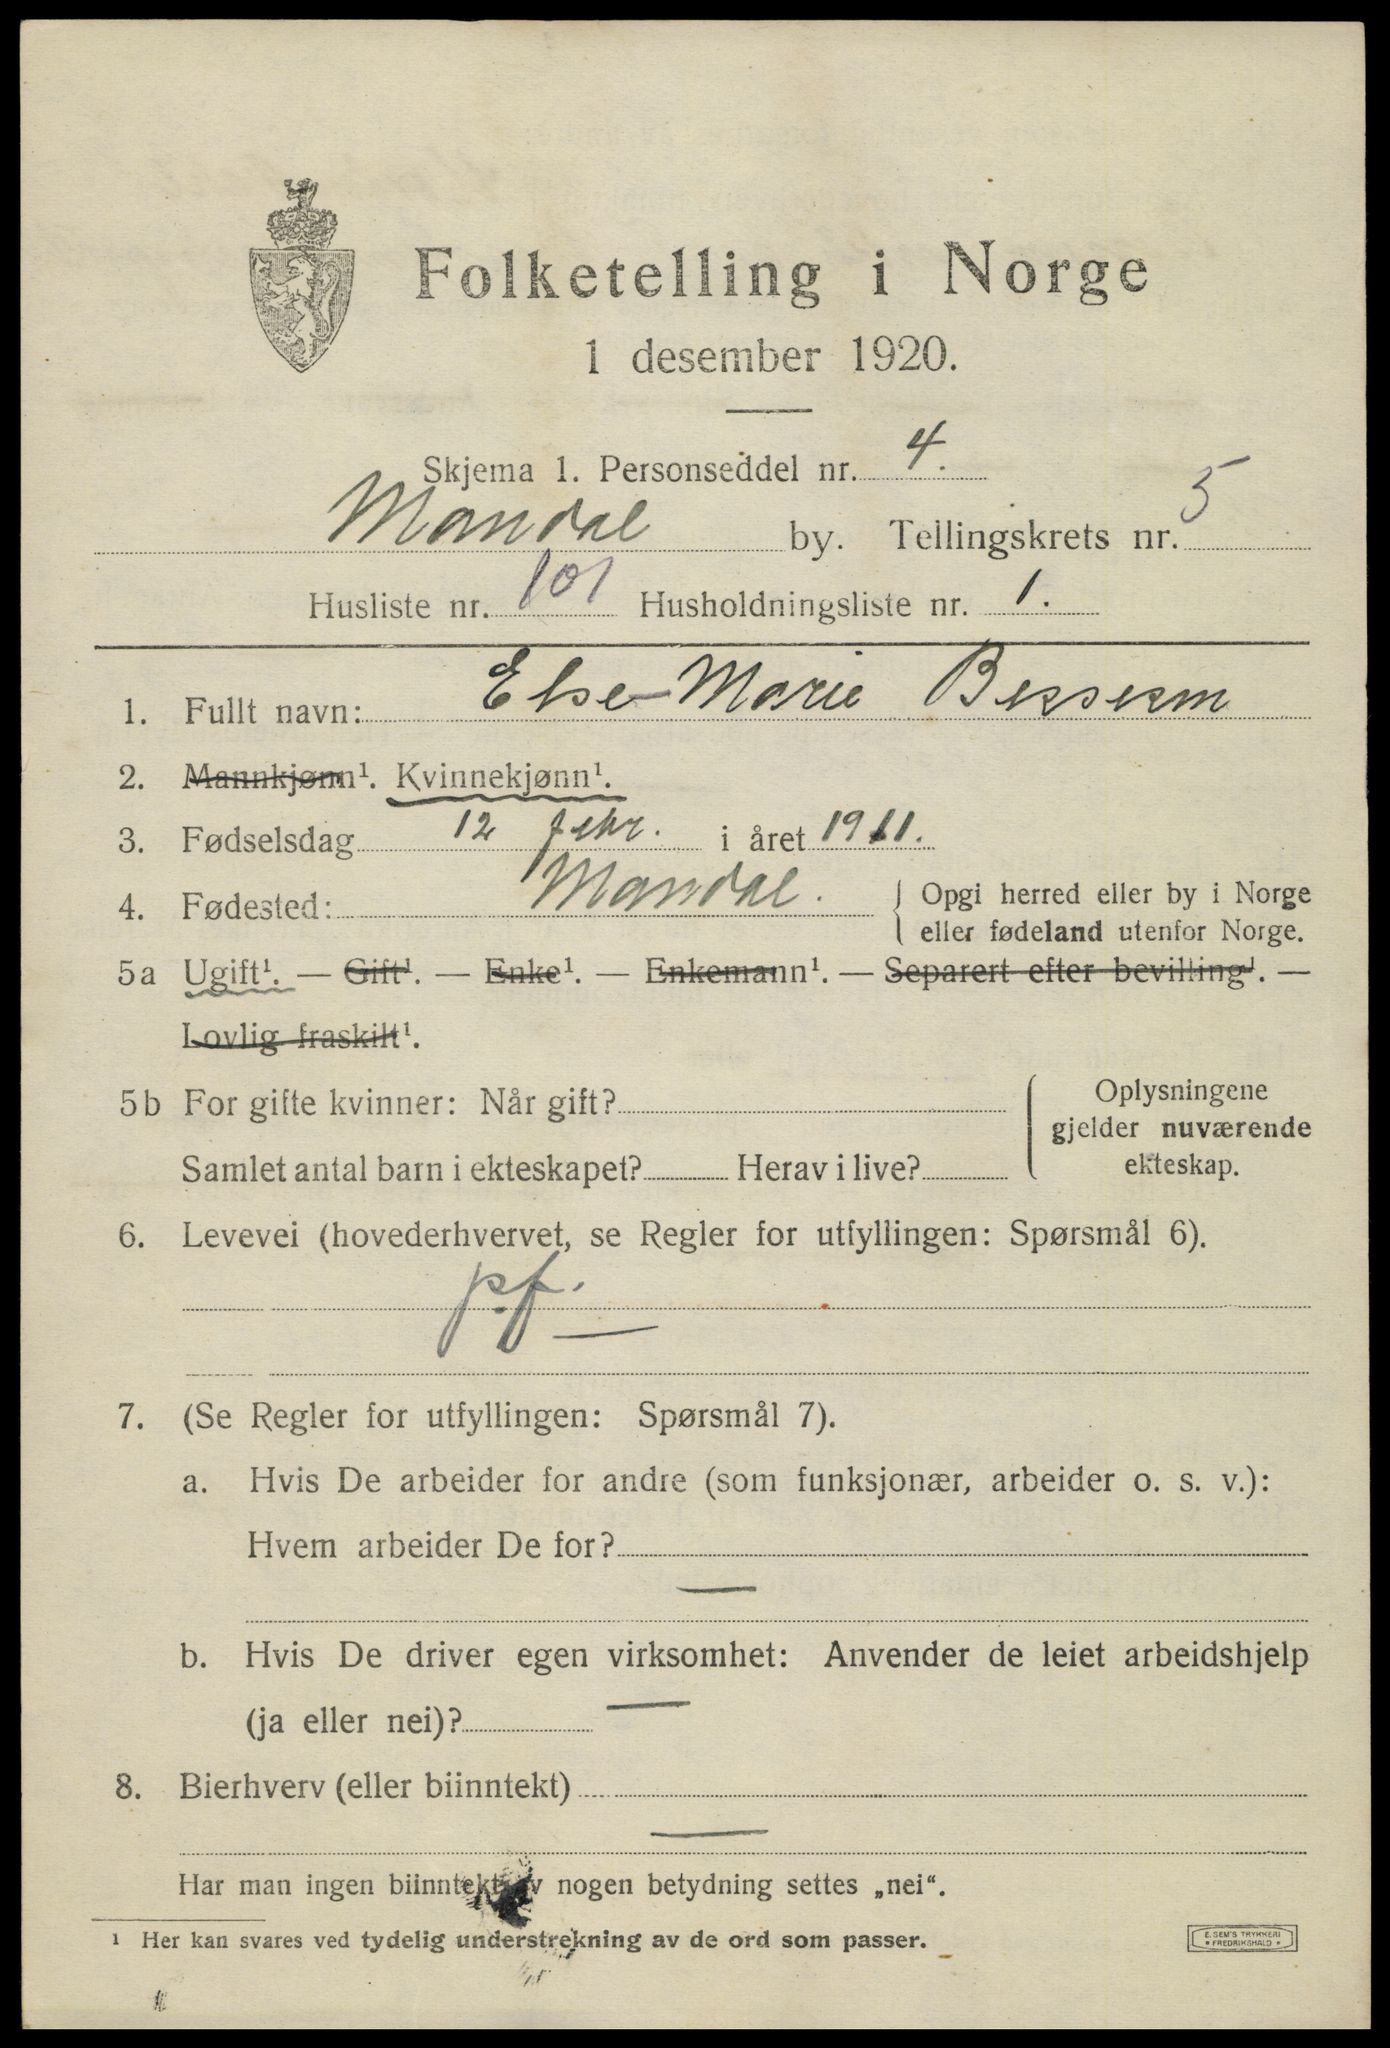 Folketelling i Norge
1 desember 1920.
Skjema 1. Personseddel nr. 4.
Mandal by. Tellingskrets nr. 5
Husliste nr. 101 Husholdningsliste nr. 1.
1. Fullt navn: Else Marie Bessesen
2. Mannkjønn¹. Kvinnekjønn¹.
3. Fødselsdag 12 febr. i året 1911.
4. Fødested: Mandal. { Opgi herred eller by i Norge
eller fødeland utenfor Norge.
5a Ugift¹. — Gift¹. — Enke¹. — Enkemann¹. — Separert efter bevilling¹. —
Lovlig fraskilt¹.
5b For gifte kvinner: Når gift? { Oplysningene
gjelder nuværende
Samlet antal barn i ekteskapet? Herav i live? ekteskap.
6. Levevei (hovederhvervet, se Regler for utfyllingen: Spørsmål 6).
p.f.
7. (Se Regler for utfyllingen: Spørsmål 7).
a. Hvis De arbeider for andre (som funksjonær, arbeider o. s. v.):
Hvem arbeider De for?
—
b. Hvis De driver egen virksomhet: Anvender de leiet arbeidshjelp
(ja eller nei)? —
8. Bierhverv (eller biinntekt)
—
Har man ingen biinntekt av nogen betydning settes „nei“.
¹ Her kan svares ved tydelig understrekning av de ord som passer.
E. SEM'S TRYKKERI
• FREDRIKSHALD •